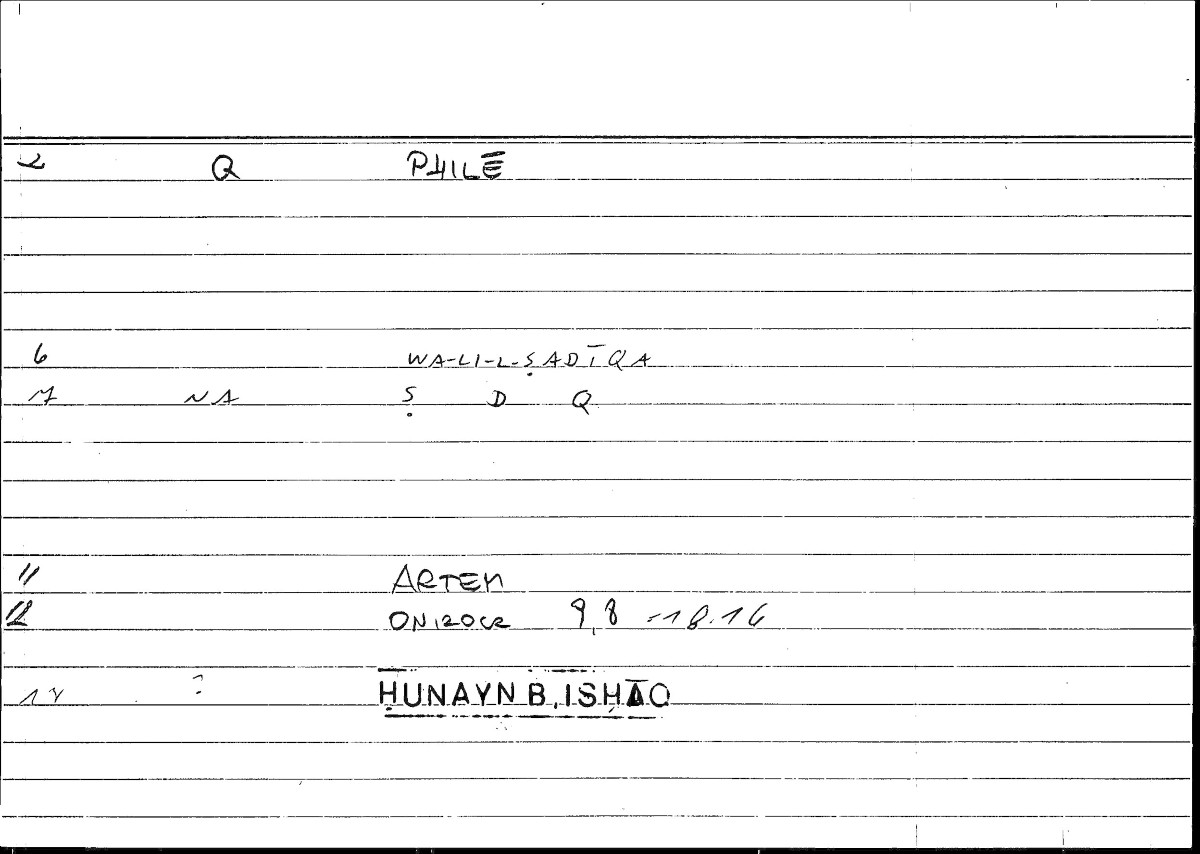 2 Q PHILĒ
6 WA-LI-L-ṢADĪQA
7 NA Ṣ D Q
11 ARTEM
12 ONIROCR 9,8 - 18.16
? ḤUNAYN B. ISḤĀQ